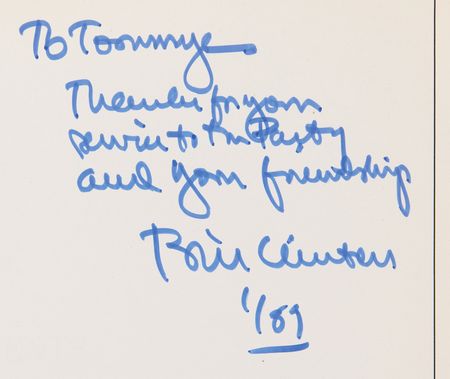 To Toommye
Thanks for your
service to the Party
and your friendship
Bill Clinton
1/89